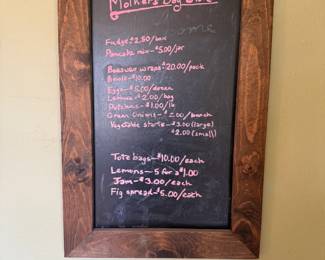 Mothers Day Sale
Fudge $2.50/box
Pancake mix - $5.00/jar
Beeswax wraps $20.00/pack
Bowls - $10.00
Eggs - $5.00/dozen
Lettuce - $2.00/bag
Green Onions - $2.00/bunch
Vegetable starts - $3.00 (large)
$2.00 (small)
Tote bags - $10.00/each
Lemons - 5 for $1.00
Jam - $3.00/each
Fig spread - $5.00/each